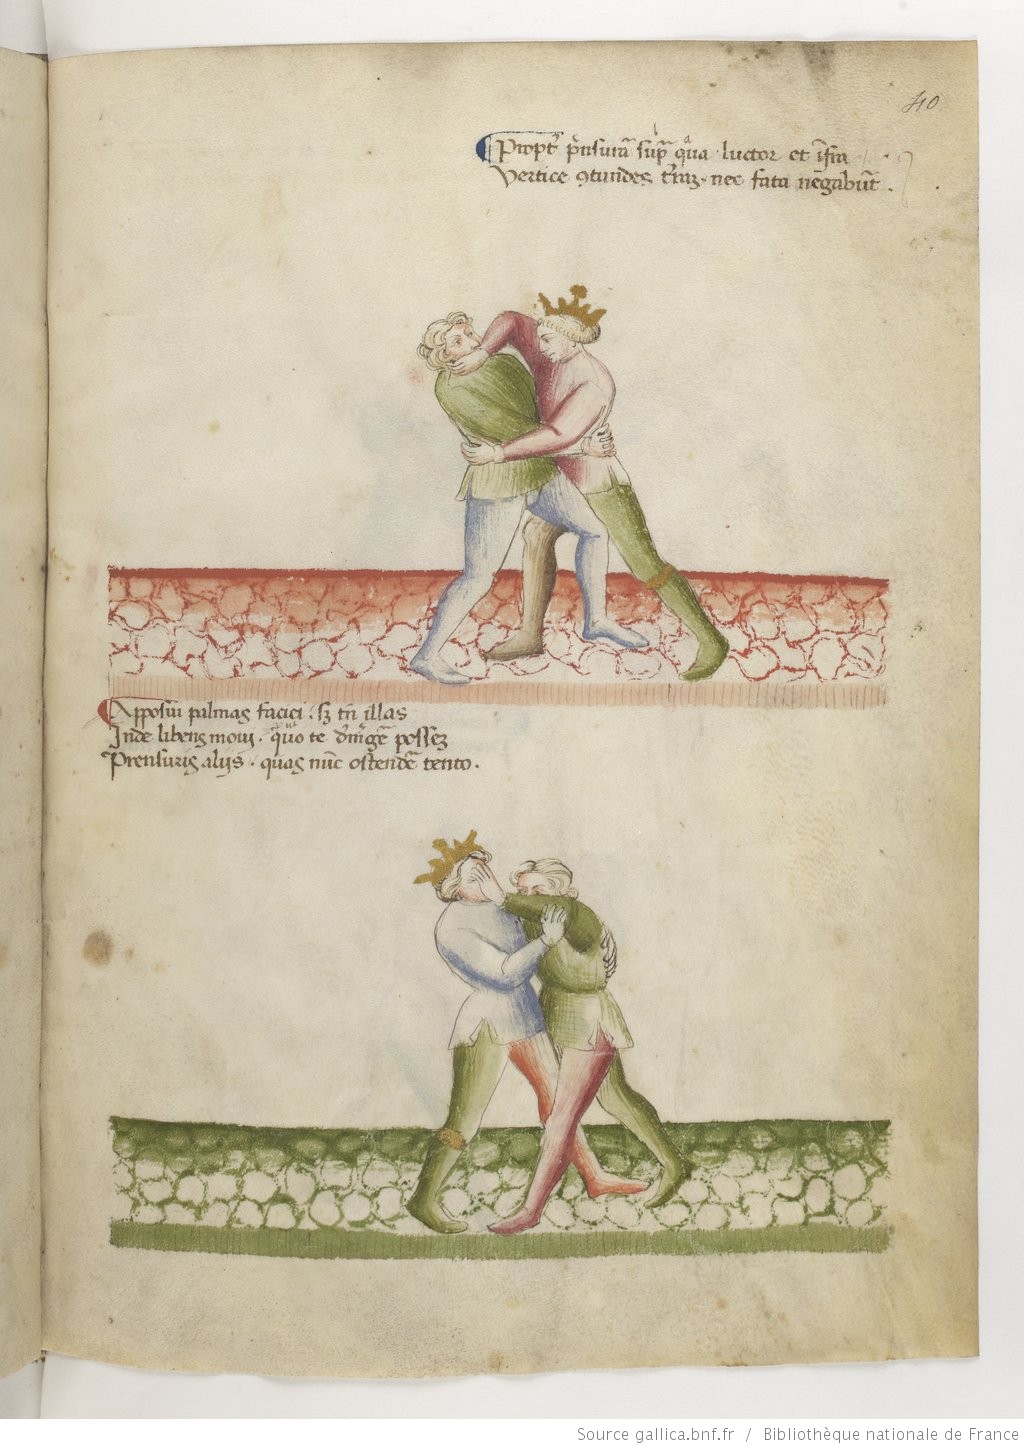 40
Propt͛ p̄nsurā sup̄ qͣua luctor et īfra
Vertice ꝯtundes t̄raꝫ. nec fata nēgabūt.
Apposui palmas faciei. sꝫ tn̄ illas
Inde libens moui. quo te posseꝫ
Prensuris alijs. quas nūc ostendē tento.
Source gallica.bnf.fr / Bibliothèque nationale de France